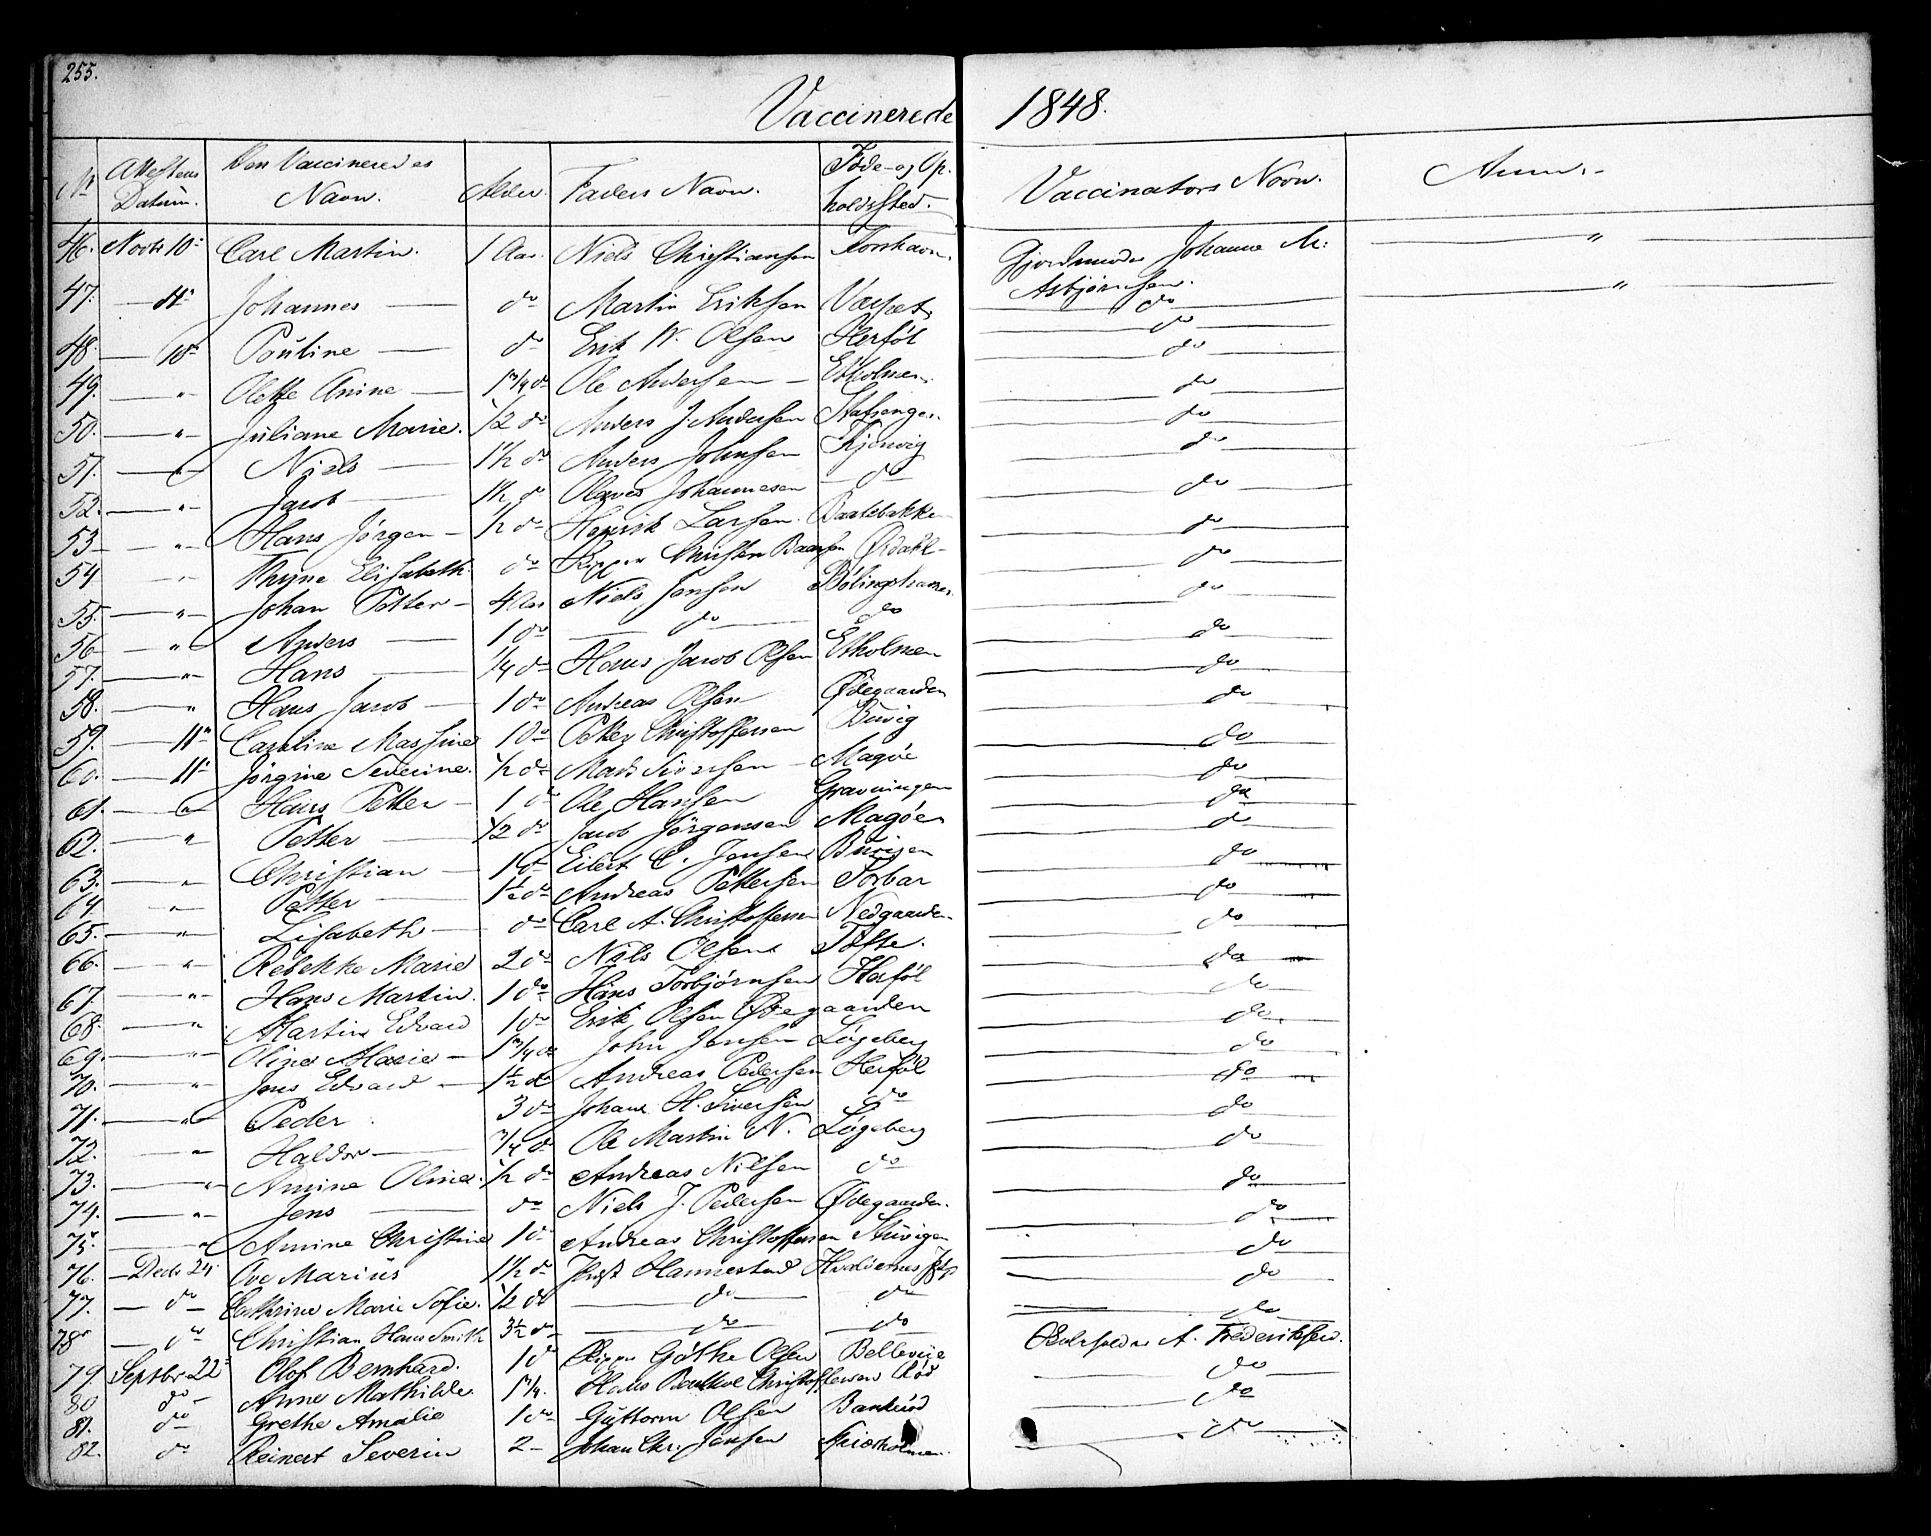 255.
Vaccinerede 1848.
Nr Attestens Datum. Den Vaccineredes Navn. Alder. Faders Navn. Føde- og Opholdssted. Vaccinators Navn. Anm.
46. Novbr 10de Carl Martin. 1 Aar. Niels Christiansen Gjordemoder Johanne M: Asbjørnsen. "
47. — 11te Johannes — do Martin Eriksen do "
48. — 10de Pauline — do Erik N. Olsen Herføl do
49. — " — Olette Anine — 1 3/4 do Ole Andersen — Ekholmen do
50. — " — Juliane Marie. 1/2 do Anders J. Andersen do
51. — " — Niels — 1 1/2 do Anders Johnsen Kjønvig do
52. — " — Jacob — 1 1/2 do Olaves Johannesen do do
53 — " — Hans Jörgen — 1/2 do Henrik Larsen. Baalsbakken do
54 — " — Thrine Elisabeth do Skipper Christen do
55. — " — Johan Petter — 4 Aar Niels Jensen Bölingshavnen do
56 — " — Anders — 1 do — do — do do
57. — " — Hans — 1/4 do Hans Jacob Olsen Ekholmen do
58. — " — Hans Jacob — 1 do Andreas Olsen Ødegaarden do
59. — 11te Caroline Massine 1 do Petter Christoffersen Buvig do
60. — 11te Jörgine Severine. 1/2 do Mads Siversen — Magøe do
61. — " — Hans Petter — 1 do Ole Hansen Gravningen do
62. — " Petter — 1/2 do Jacob Jörgensen Magøen do
63. — " Christian — 1 do Eilert C. Jensen Buvigen do
64 — " — Petter — 1 1/2 do Andreas Pettersen Torbar do
65. — " — Lisabeth — do Carl A. Christoffersen Nedgaarden do
66. — " — Rebekke Marie 2 do Nils Olsen Tofte. do
67. — " — Hans Martin. 1 do Hans Torbjørnsen Herføl do
68. — " — Martin Edvard 1 do Erik Olsen Ødegaarden do
69. — " — Oline Marie — 1 3/4 do John Jensen Løgeberg do
70. — " — Jens Edvard — 1 1/2 do Andreas Pedersen Herføl do
71. — " — Peder 3 do Johan H. Siversen do do
72. — " — Haldor — 3/4 do Ole Martin N. Løgeberg do
73. — " — Amine Oline. 1/2 do Andreas Nilsen do do
74. — " — Jens — do Niels J. Pedersen Ødegaarden. do
75. — " Amine Christine 1 do Andreas Christoffersen Stuvigen do
76. — Decbr 24 Ove Marius 1 1/2 do Prost Hannestad Hvaløernes do
77. — do — Cathrine Marie Sofie. 1/2 do — do — do do
78 — do Christian Hans Smith 3 1/2 do — do — do A. Frederiksen.
79 Septbr 22de Olof Bernhard. 1 do Skipper Göthe Olsen Bellevüe do
80 do — Anne Mathilde 1 3/4. Hans Christoffersen Rød do
81. do Grethe Amalie 1 do Guttorm Olsen Bankerød do
82. do Reinert Severin 2 — Johan Chr. Jensen